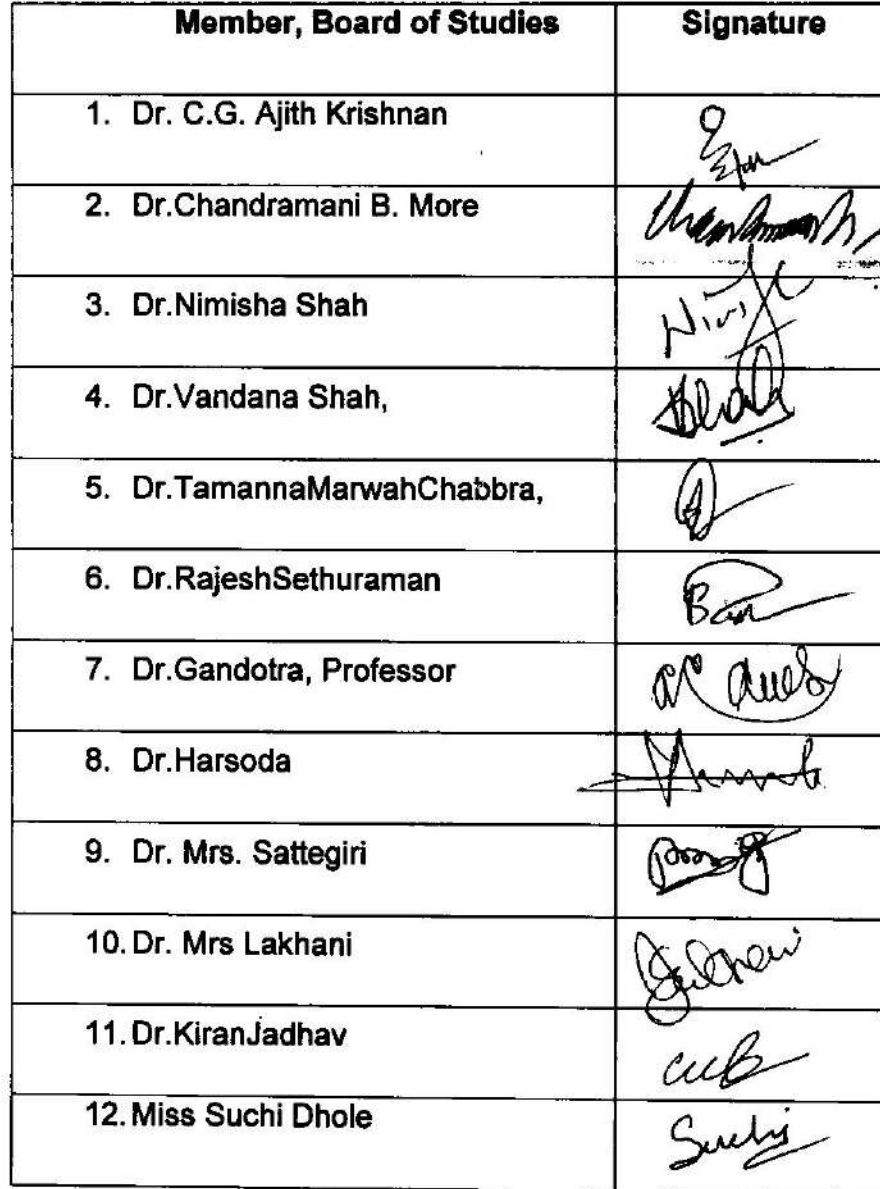 Member, Board of Studies Signature
1. Dr. C.G. Ajith Krishnan
2. Dr.Chandramani B. More
3. Dr.Nimisha Shah
4. Dr.Vandana Shah,
5. Dr.TamannaMarwahChabbra,
6. Dr.RajeshSethuraman
7. Dr.Gandotra, Professor
8. Dr.Harsoda
9. Dr. Mrs. Sattegiri
10. Dr. Mrs Lakhani
11. Dr.KiranJadhav
12. Miss Suchi Dhole Suchi